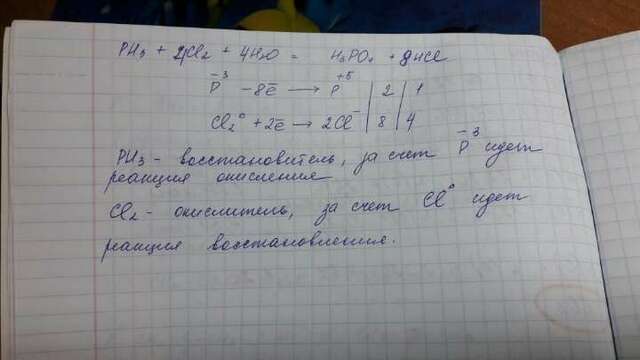 PH₃ + 4Cl₂ + 4H₂O = H₃PO₄ + 8HCl
P⁻³ - 8e̅ → P⁺⁵ | 2 | 1
Cl₂⁰ + 2e̅ → 2Cl⁻ | 8 | 4
PH₃ - восстановитель, за счет P⁻³ идет
реакция окисления
Cl₂ - окислитель, за счет Cl⁰ идет
реакция восстановления.